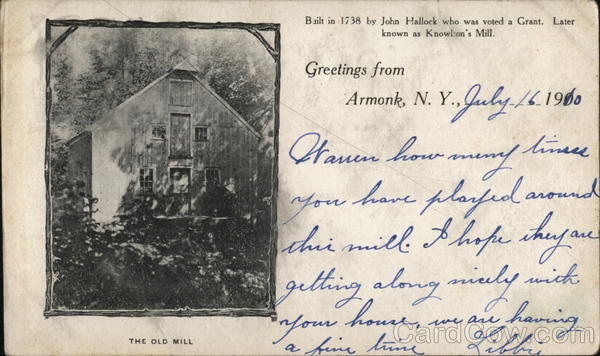 Built in 1738 by John Hallock who was voted a Grant. Later
known as Knowlton's Mill.
Greetings from
Armonk, N. Y., July 16 1910
Warren how many times
you have played around
this mill. I hope they are
getting along nicely with
your house, we are having
a fine time Libbie
THE OLD MILL
CardCow.com